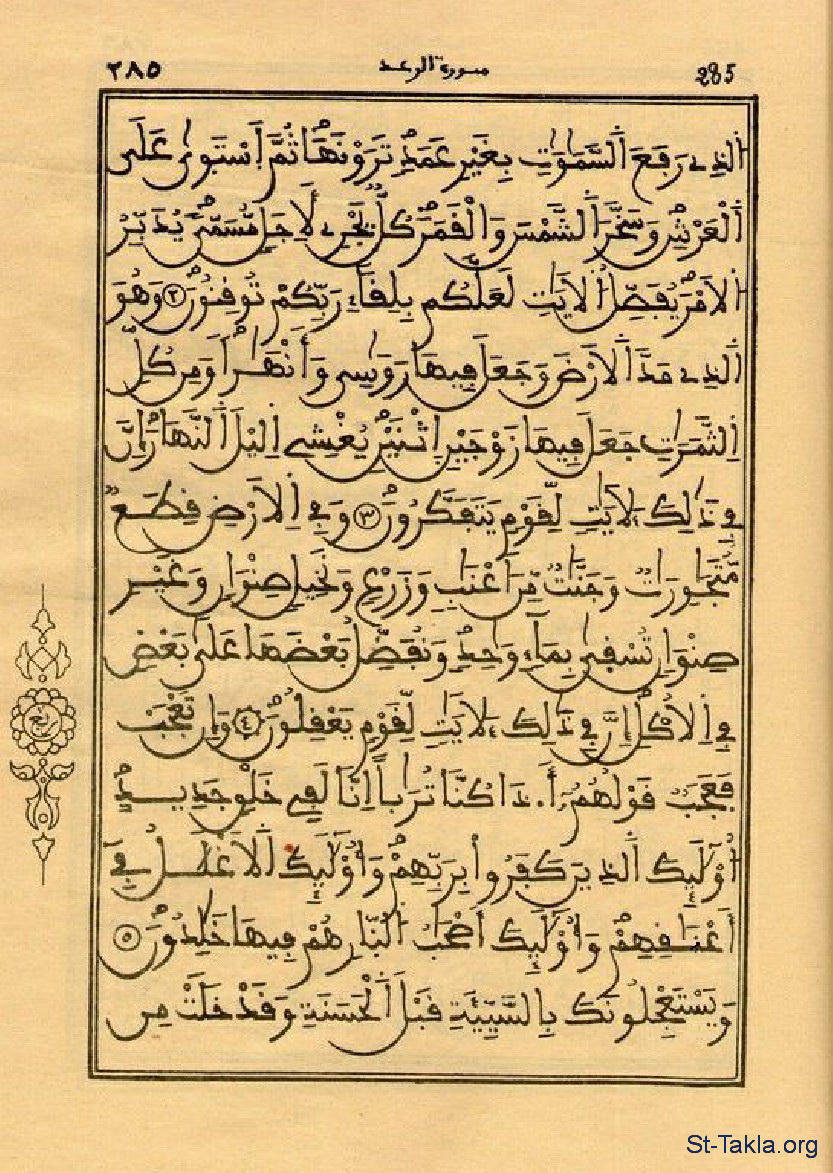 ٢٨٥ سورة الرعد 285
اَ۬لذِے رَفَعَ اَ۬لسَّمَٰوَٰتِ بِغَيْرِ عَمَدٖ تَرَوْنَهَا ثُمَّ اَ۪سْتَو۪يٰ عَلَي
اَ۬لْعَرْشِۖ وَسَخَّرَ اَ۬لشَّمْسَ وَالْقَمَرَۖ كُلّٞ يَجْرِے لِأَجَلٖ مُّسَمّيٗۖ يُدَبِّرُ
اُ۬لَامْرَ يُفَصِّلُ اُ۬لَايَٰتِ لَعَلَّكُم بِلِقَآءِ رَبِّكُمْ تُوقِنُونَۖ ٢ وَهُوَ
اَ۬لذِے مَدَّ اَ۬لَارْضَ وَجَعَلَ فِيهَا رَوَٰسِيَ وَأَنْهَٰراٗۖ وَمِن كُلِّ
اِ۬لثَّمَرَٰتِ جَعَلَ فِيهَا زَوْجَيْنِ اِ۪ثْنَيْنِۖ يُغْشِے اِ۬ليْلَ اَ۬لنَّهَارَۖ إِنَّ
فِے ذَٰلِكَ ءَلَايَٰتٖ لِّقَوْمٖ يَتَفَكَّرُونَۖ ٣ وَفِے اِ۬لَارْضِ قِطَعٞ
مُّتَجَٰوِرَٰتٞ وَجَنَّٰتٞ مِّنَ اَعْنَٰبٖ وَزَرْعٖ وَنَخِيلٖ صِنْوَانٖ وَغَيْرِ
صِنْوَانٖ تُسْقَىٰ بِمَآءٖ وَٰحِدٖ وَنُفَضِّلُ بَعْضَهَا عَلَىٰ بَعْضٖ
فِے اِ۬لُاكْلِۖ إِنَّ فِے ذَٰلِكَ ءَلَايَٰتٖ لِّقَوْمٖ يَعْقِلُونَۖ ٤ وَإِن تَعْجَبْ
فَعَجَبٞ قَوْلُهُمُۥٓ أَ.ذَا كُنَّا تُرَٰباً اِنَّا لَفِے خَلْقٖ جَدِيدٍۖ
ا۟وْلَٰٓئِكَ اَ۬لذِينَ كَفَرُواْ بِرَبِّهِمْۖ وَأُوْلَٰٓئِكَ اَ۬لَاغْلَٰلُ فِےٓ
أَعْنَٰقِهِمْۖ وَأُوْلَٰٓئِكَ أَصْحَٰبُ اُ۬لنّ۪ارِ هُمْ فِيهَا خَٰلِدُونَۖ ٥
وَيَسْتَعْجِلُونَكَ بِالسَّيِّئَةِ قَبْلَ اَ۬لْحَسَنَةِ وَقَدْ خَلَتْ مِن
ربع
St-Takla.org